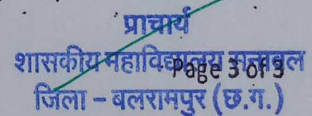 प्राचार्य
शासकीय महाविद्यालय
Page 3 of 3
जिला - बलरामपुर (छ.ग.)